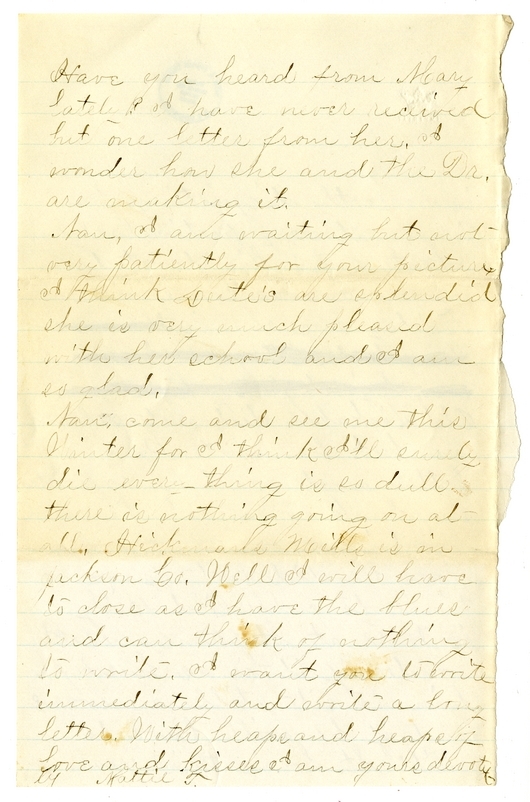 Have you heard from Mary
lately? I have never recived
but one letter from her. I
wonder how she and the Dr.
are making it.
Nan, I am waiting but not
very patiently for your picture
I think are splendid
she is very much pleasd
with her school and I am
so glad.
Nan, come and see me this
Winter for I think I'll surely
die every-thing is so dull.
there is nothing going on at
all. Hickmans Mills is in
Jackson Co. Well I will have
to close as I have the blues
and can think of nothing
to write. I want you to write
immediately and write a long
letter. With heaps and heaps of
love and kisses I am yours devote
ly Mattie T.